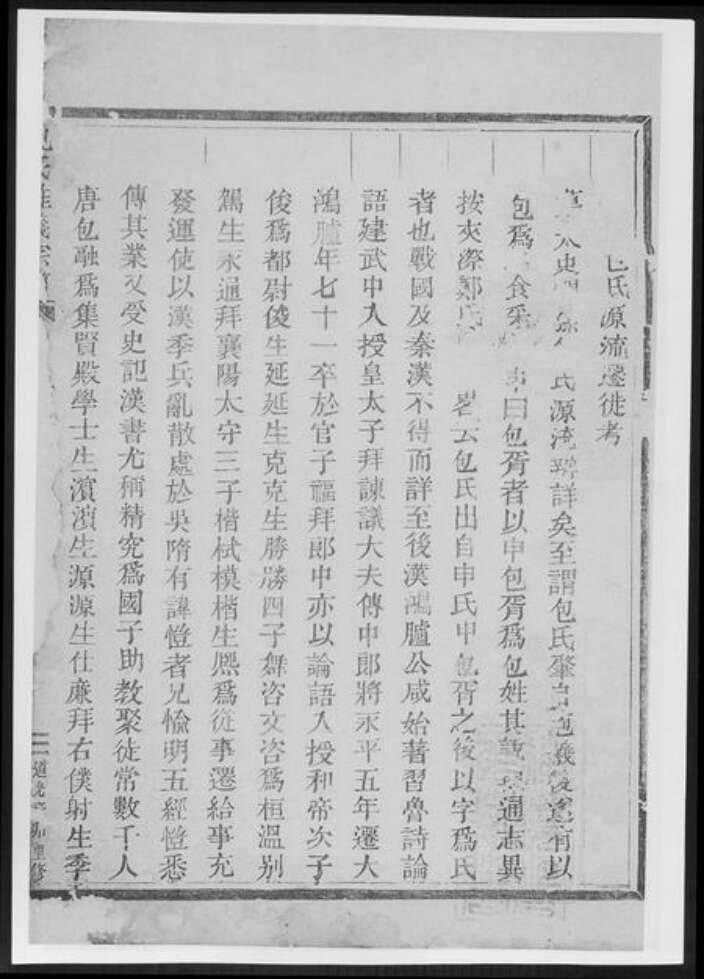 包氏源流遷徙考
太史 氏源流 詳矣至謂包氏肇自包羲後遂有以
包爲 食采 曰包胥者以申包胥爲包姓其說與通志異
按夾漈鄭氏 云包氏出自申氏申包胥之後以字爲氏
者也戰國及秦漢不得而詳至後漢鴻臚公咸始著習魯詩論
語建武中入授皇太子拜諫議大夫傳中郎將永平五年遷大
鴻臚年七十一卒於官子福拜郎中亦以論語入授和帝次子
俊爲都尉俊生延延生克克生勝勝四子舞咨文咨爲桓溫别
駕生永通拜襄陽太守三子楷栻模楷生熙爲從事遷給事充
發運使以漢季兵亂散處於吳隋有諱愷者兄愉明五經愷悉
傳其業又受史記漢書尤稱精究爲國子助教聚徒常數千人
唐包融爲集賢殿學士生濱濱生源源生仕廉拜右僕射生季
包氏 宗
一
道光